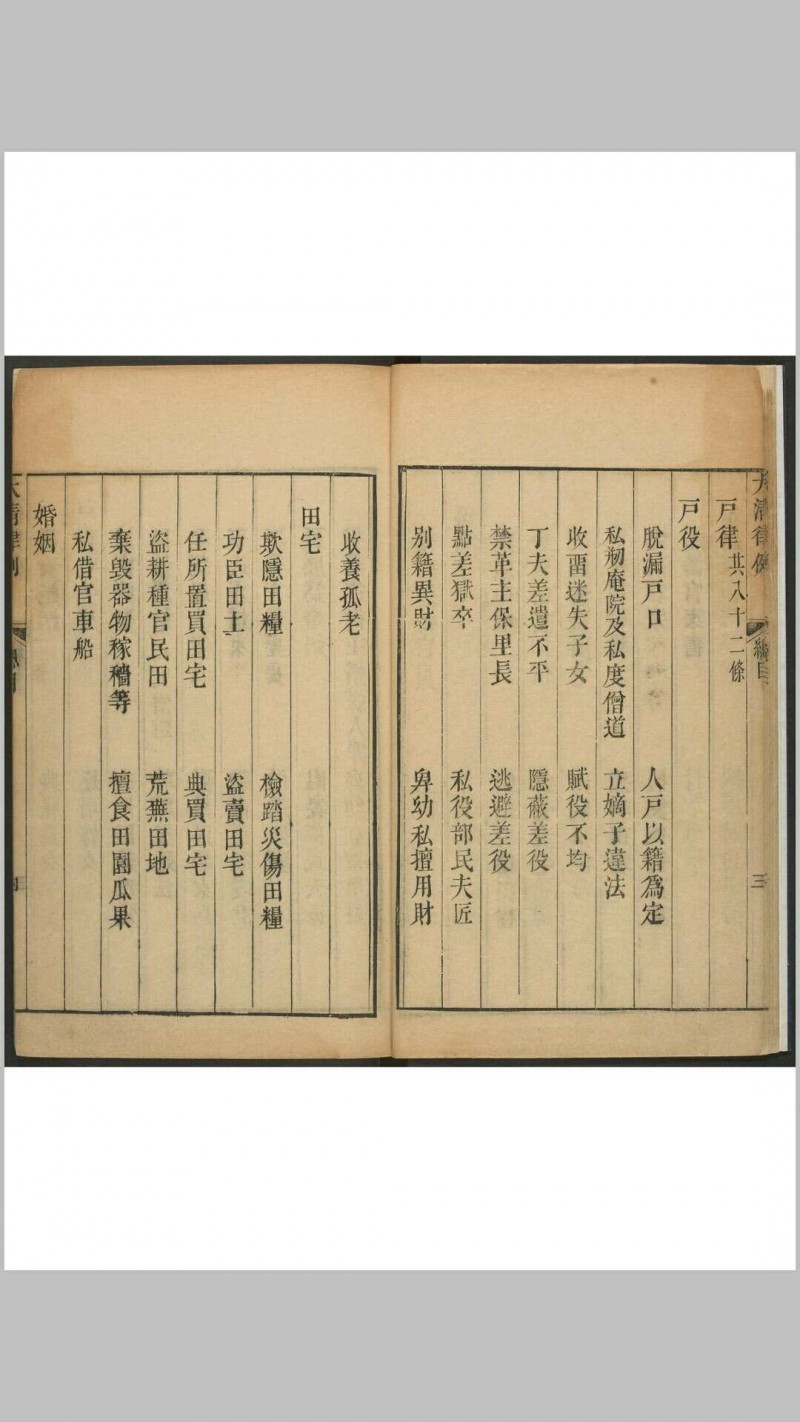 大清律例 總目 三
戸律共八十二條
戸役
脫漏戸口 人戸以籍爲定
私刱庵院及私度僧道 立嫡子違法
收畱迷失子女 賦役不均
丁夫差遣不平 隱蔽差役
禁革主保里長 逃避差役
點差獄卒 私役部民夫匠
别籍異財 𤰞幼私擅用財
收養孤老
田宅
欺隱田糧 檢踏災傷田糧
功臣田土 盜賣田宅
任所置買田宅 典買田宅
盜耕種官民田 荒蕪田地
棄毀器物稼穡等 擅食田園瓜果
私借官車船
婚姻
大清律例